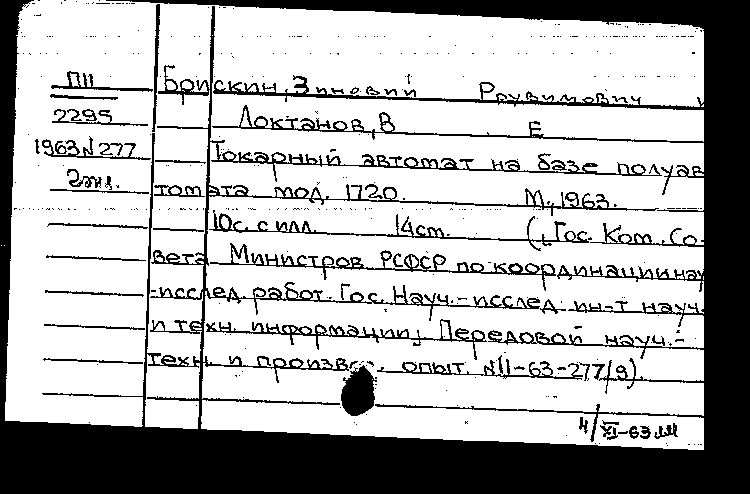 П11 Брискин, Зиновий Рувимович и
2295 Локтанов, В Е
1963 N 277 Токарный автомат на базе полуав
2эк. томата мод. 1720. М., 1963.
10с. с илл. 14см. (, Гос. Ком. Со-
вета Министров РСФСР по координации нау
-исслед. работ. Гос. Науч.-исслед. ин-т науч.
и техн. информации, Передовой науч.-
техн. и произв. опыт. N11-63-277/9).
4/XI-63